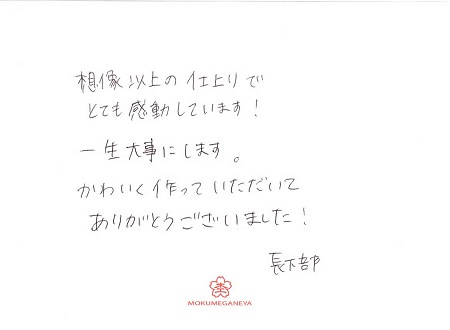 想像以上の仕上りで
とても感動しています!
一生大事にします。
かわいく作っていただいて
ありがとうございました!
長下部
MOKUMEGANEYA